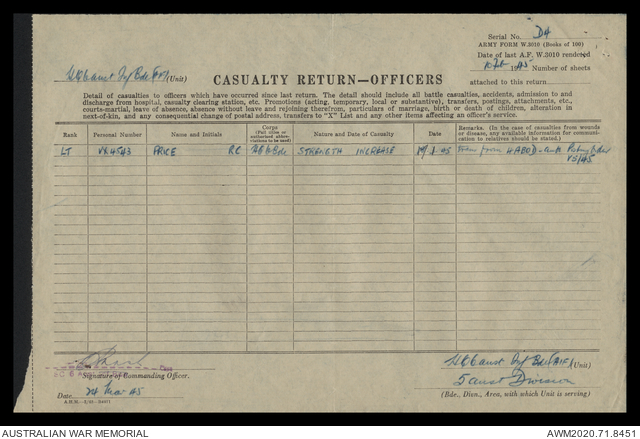 Serial No. D4
ARMY FORM W.3010 (Books of 100)
Date of last A.F. W.3010 rendered
1945 Number of sheets
attached to this return
HQ 6 Aust Inf Bde (AIF) (Unit)
CASUALTY RETURN—OFFICERS
Detail of casualties to officers which have occurred since last return. The detail should include all battle casualties, accidents, admission to and
discharge from hospital, casualty clearing station, etc. Promotions (acting, temporary, local or substantive), transfers, postings, attachments, etc.,
courts-martial, leave of absence, absence without leave and rejoining therefrom, particulars of marriage, birth or death of children, alteration in
next-of-kin, and any consequential change of postal address, transfers to "X" List and any other items affecting an officer's service.
Rank
Personal Number
Name and Initials
Corps
(Full titles or
authorized abbre-
viations to be used)
Nature and Date of Casualty
Date
Remarks. (In the case of casualties from wounds
or disease, any available information for communi-
cation to relatives should be stated.)
LT VX4543 PRICE RC HQ 6 Bde STRENGTH INCREASE from
Signature of Commanding Officer.
Date 24 Mar 45
HQ 6 Aust Inf Bde (AIF) (Unit)
5 Aust Division
(Bde., Divn., Area, with which Unit is serving)
AUSTRALIAN WAR MEMORIAL
AWM2020.71.8451